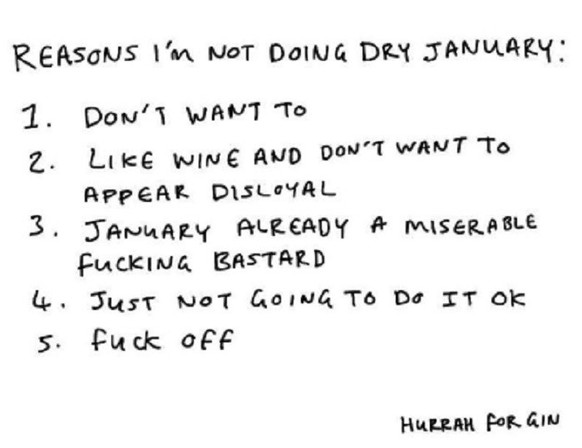 REASONS I'm NOT DOING DRY JANUARY:
1. DON'T WANT TO
2. LIKE WINE AND DON'T WANT TO
APPEAR DISLOYAL
3. JANUARY ALREADY A MISERABLE
fUCKING BASTARD
4. JUST NOT GOING TO DO IT OK
5. fuck off
HURRAH FOR GIN